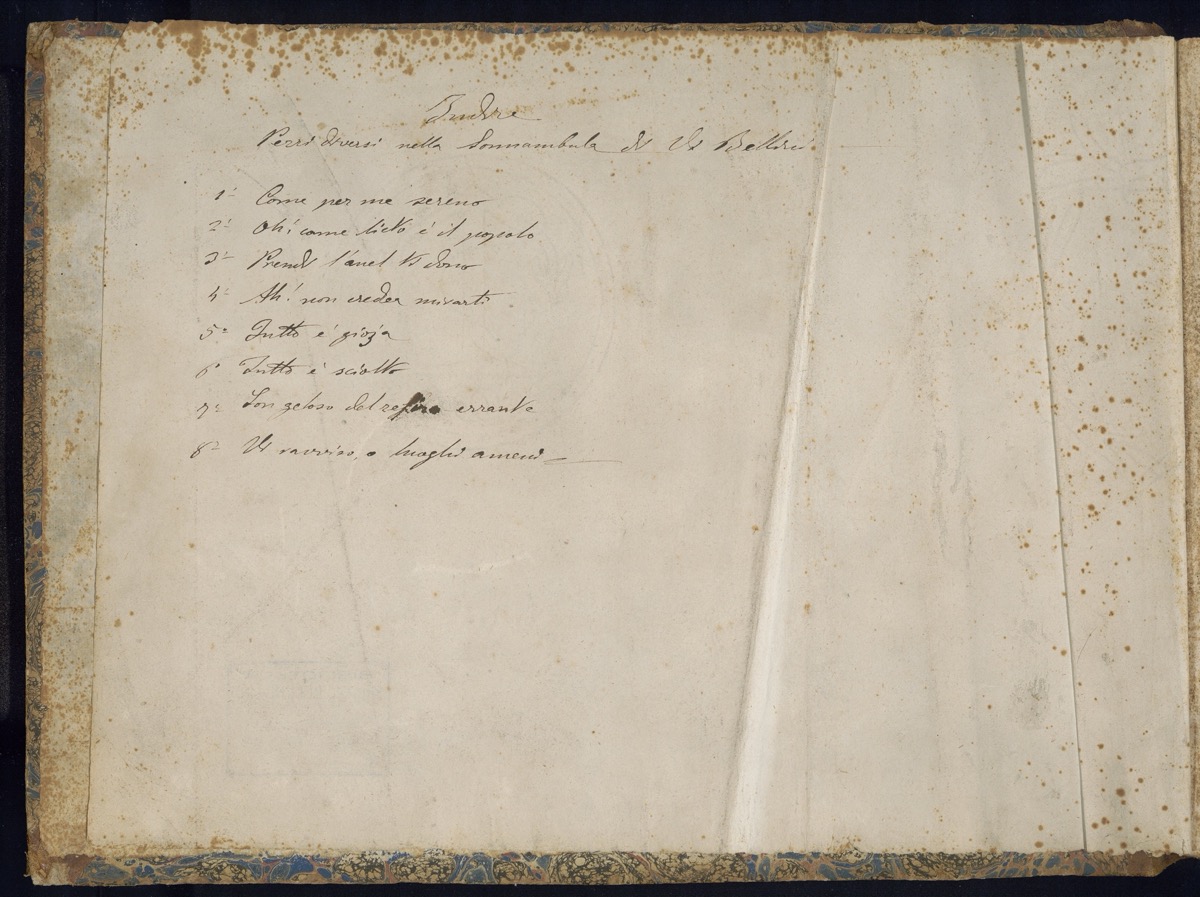 Indice
Pezzi diversi nella Sonnambula di V. Bellini
1° Come per me sereno
2° Oh! come lieto è il popolo
3° Prendi l'anel ti dono
4° Ah! non credea mirarti
5° Tutto è gioja
6° Tutto è sciolto
7° Son geloso del zefiro errante
8° Vi ravviso, o luoghi ameni